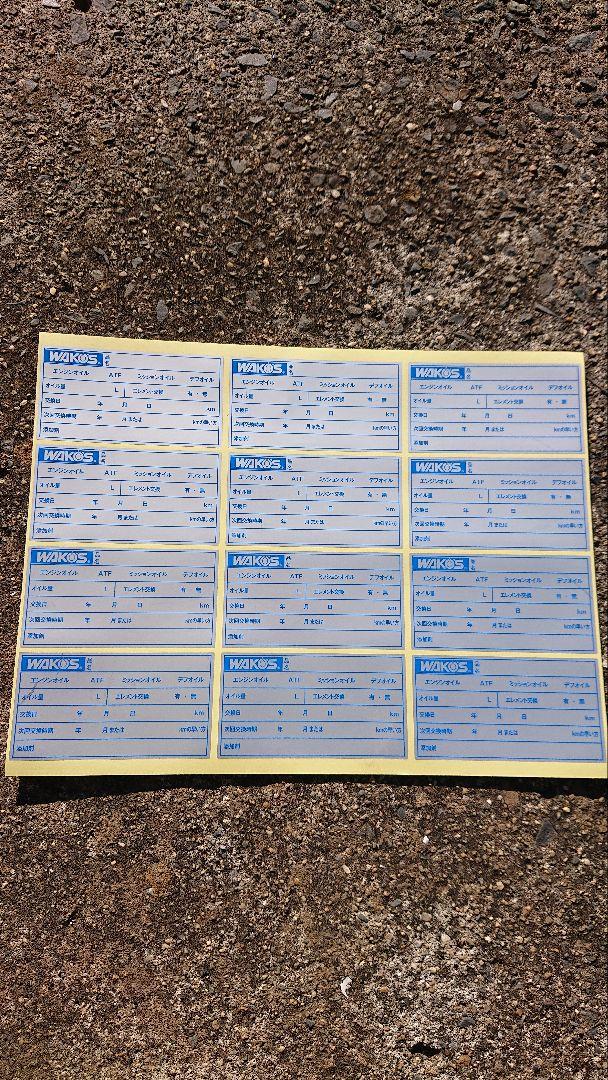 WAKO'S 品名 WAKO'S 品名 WAKO'S 品名
エンジンオイル ATF ミッションオイル デフオイル エンジンオイル ATF ミッションオイル デフオイル エンジンオイル ATF ミッションオイル デフオイル
オイル量 L エレメント交換 有・無 オイル量 L エレメント交換 有・無 オイル量 L エレメント交換 有・無
交換日 年 月 日 km 交換日 年 月 日 km 交換日 年 月 日 km
次回交換時期 年 月または kmの早い方 次回交換時期 年 月または kmの早い方 次回交換時期 年 月または kmの早い方
添加剤 添加剤 添加剤
WAKO'S 品名 WAKO'S 品名 WAKO'S 品名
エンジンオイル ATF ミッションオイル デフオイル エンジンオイル ATF ミッションオイル デフオイル エンジンオイル ATF ミッションオイル デフオイル
オイル量 L エレメント交換 有・無 オイル量 L エレメント交換 有・無 オイル量 L エレメント交換 有・無
交換日 年 月 日 km 交換日 年 月 日 km 交換日 年 月 日 km
次回交換時期 年 月または kmの早い方 次回交換時期 年 月または kmの早い方 次回交換時期 年 月または kmの早い方
添加剤 添加剤 添加剤
WAKO'S 品名 WAKO'S 品名 WAKO'S 品名
エンジンオイル ATF ミッションオイル デフオイル エンジンオイル ATF ミッションオイル デフオイル エンジンオイル ATF ミッションオイル デフオイル
オイル量 L エレメント交換 有・無 オイル量 L エレメント交換 有・無 オイル量 L エレメント交換 有・無
交換日 年 月 日 km 交換日 年 月 日 km 交換日 年 月 日 km
次回交換時期 年 月または kmの早い方 次回交換時期 年 月または kmの早い方 次回交換時期 年 月または kmの早い方
添加剤 添加剤 添加剤
WAKO'S 品名 WAKO'S 品名 WAKO'S 品名
エンジンオイル ATF ミッションオイル デフオイル エンジンオイル ATF ミッションオイル デフオイル エンジンオイル ATF ミッションオイル デフオイル
オイル量 L エレメント交換 有・無 オイル量 L エレメント交換 有・無 オイル量 L エレメント交換 有・無
交換日 年 月 日 km 交換日 年 月 日 km 交換日 年 月 日 km
次回交換時期 年 月または kmの早い方 次回交換時期 年 月または kmの早い方 次回交換時期 年 月または kmの早い方
添加剤 添加剤 添加剤